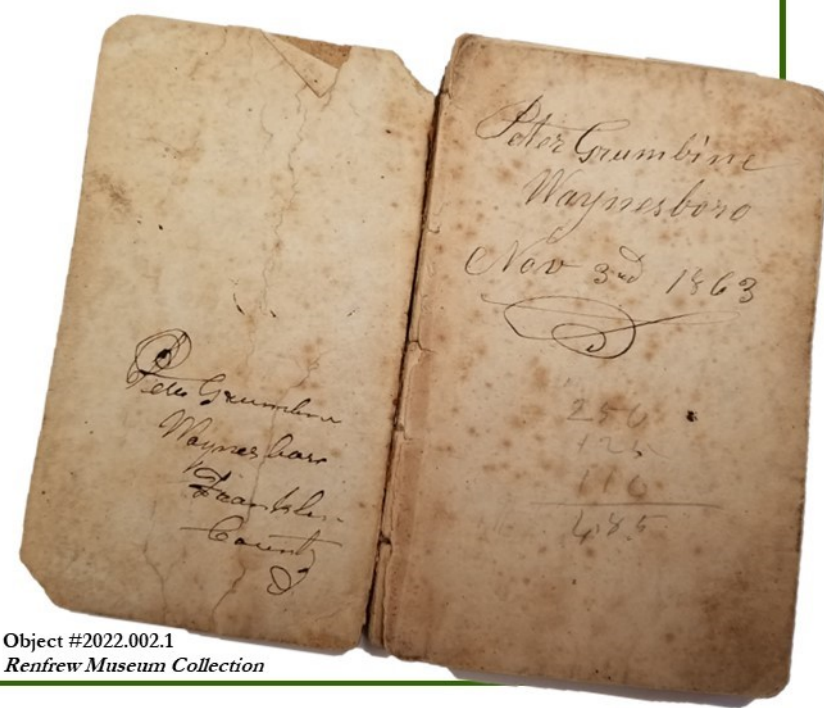 Peter Grumbine
Waynesboro
Franklin
County
Peter Grumbine
Waynesboro
Nov 3rd 1863
250
125
110
485
Object #2022.002.1
Renfrew Museum Collection